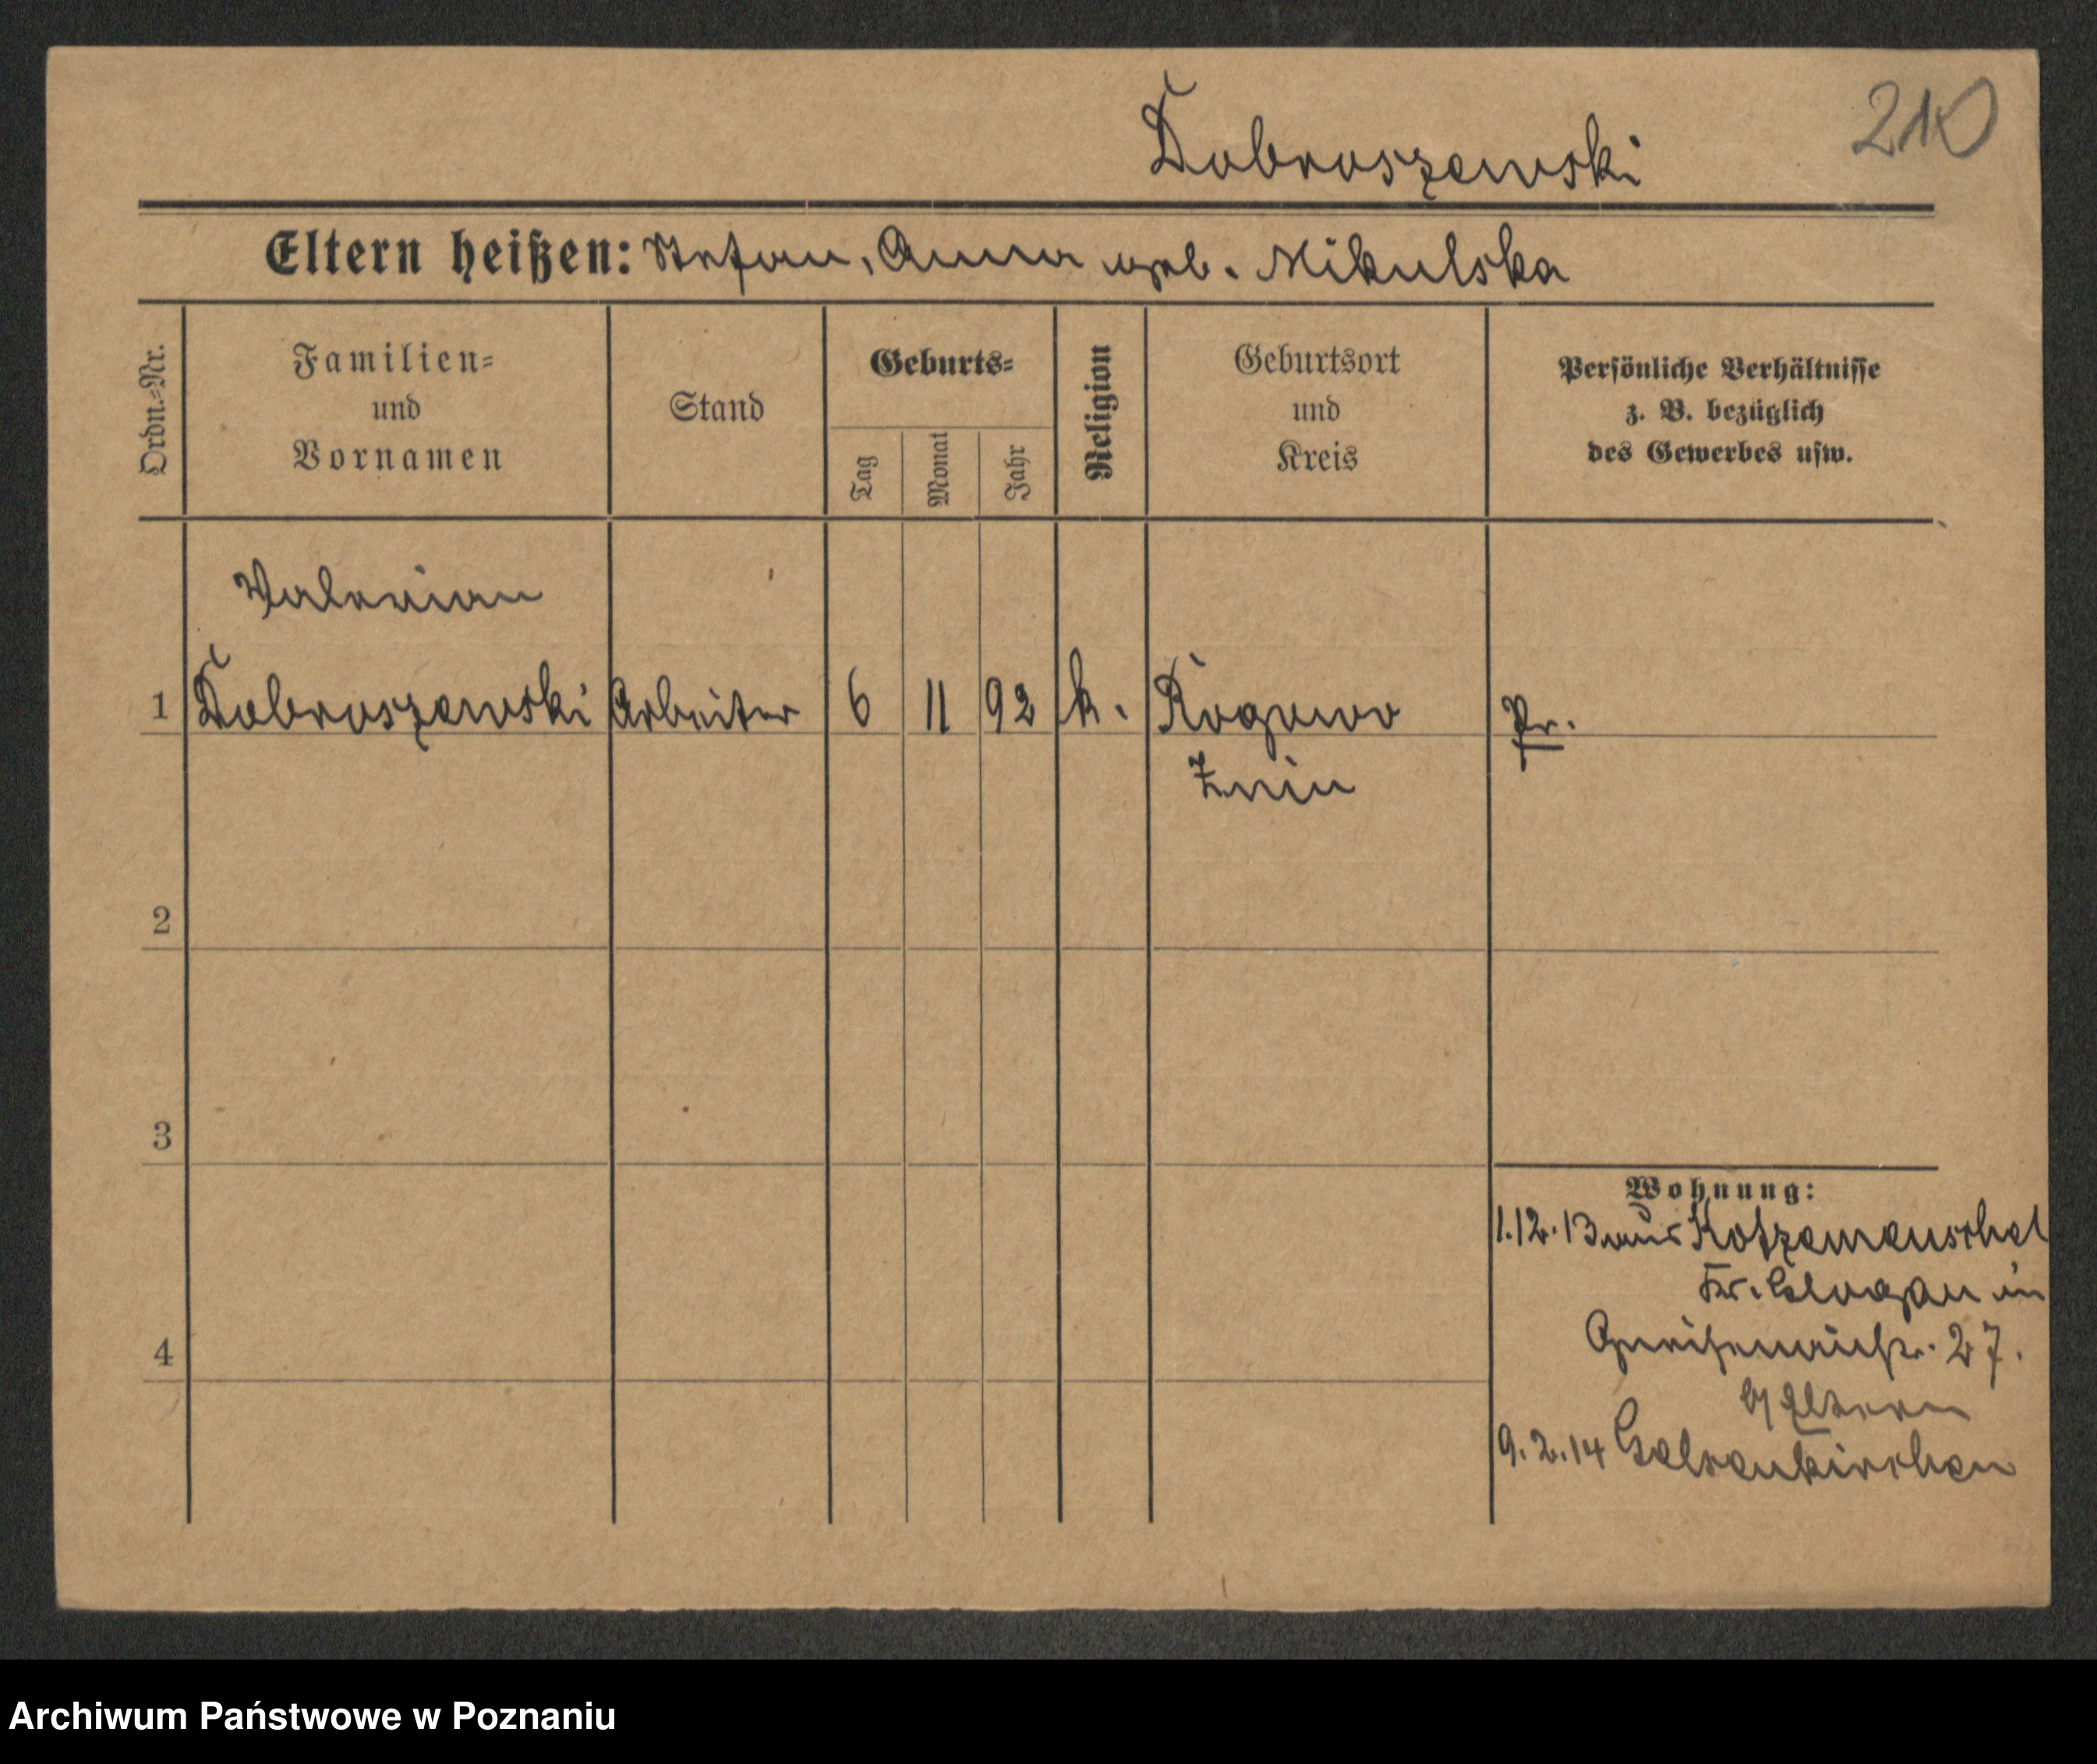 Dobroszewski
210
Eltern heißen: Stefan, Anna geb. Mikulska
Ordn.-Nr.
Familien-
und
Vornamen
Stand
Geburts-
Tag
Monat
Jahr
Religion
Geburtsort
und
Kreis
Persönliche Verhältnisse
z. B. bezüglich
des Gewerbes usw.
Valerian
1 Dobroszewski Arbeiter 6 11 92 k. Rogowo Pr.
Znin
2
3
4
Wohnung:
1.12.13 aus Kotzemeuschel
Kr. Glogau in
Gneisenaustr. 27.
b/ Eltern
9.2.14 Gelsenkirchen
Archiwum Państwowe w Poznaniu